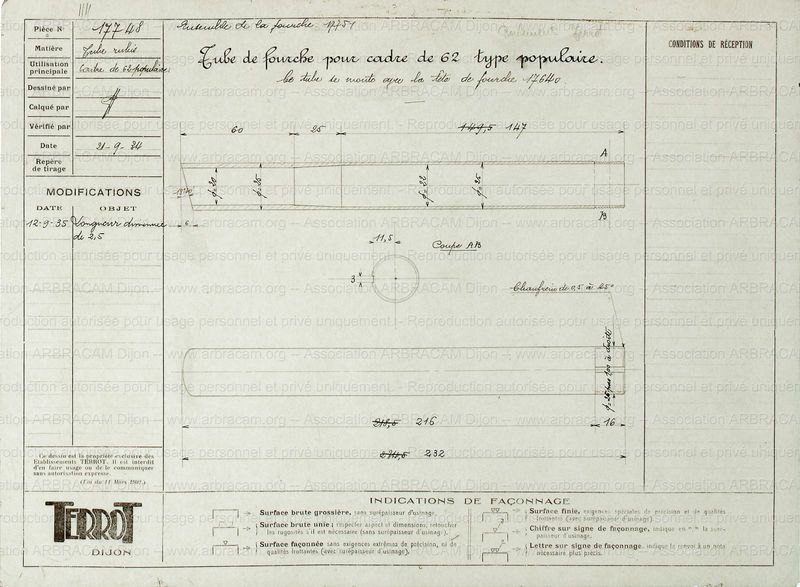 Pièce N° 17748
Matière Tube
Utilisation principale Cadre de 62 populaire
Dessiné par
Calqué par
Vérifié par
Date 21-9-34
Repère de tirage
MODIFICATIONS
DATE OBJET
12-9-35 Longueur diminuée
de 2,5
Ce dessin est la propriété exclusive des
Etablissements TERROT. Il est interdit
d'en faire usage ou de le communiquer
sans autorisation expresse.
(Loi du 11 Mars 1902.)
TERROT
DIJON
Ensemble de la fourche 17751
Tube de fourche pour cadre de 62 type populaire.
Ce tube se monte avec la tête de fourche 17640
CONDITIONS DE RÉCEPTION
60 25 149,5 147
A
B
6
11,5
Coupe AB
3
Chanfrein de 0,5 à 25°
218,5 216 16
234,5 232
INDICATIONS DE FAÇONNAGE
Surface brute grossière, sans surépaisseur d'usinage.
Surface brute unie; respecter aspect et dimensions; retoucher
les rugosités s'il est nécessaire (sans surépaisseur d'usinage).
Surface façonnée sans exigences extrêmes de précision, ni de
qualités frottantes (avec surépaisseur d'usinage).
Surface finie, exigences spéciales de précision et de qualités
frottantes (avec surépaisseur d'usinage).
Chiffre sur signe de façonnage, indique en m/m la surépaisseur d'usinage.
Lettre sur signe de façonnage, indique le renvoi à un nota
nécessaire plus précis.
www.arbracam.org -- Association ARBRACAM Dijon -- Reproduction autorisée pour usage personnel et privé uniquement